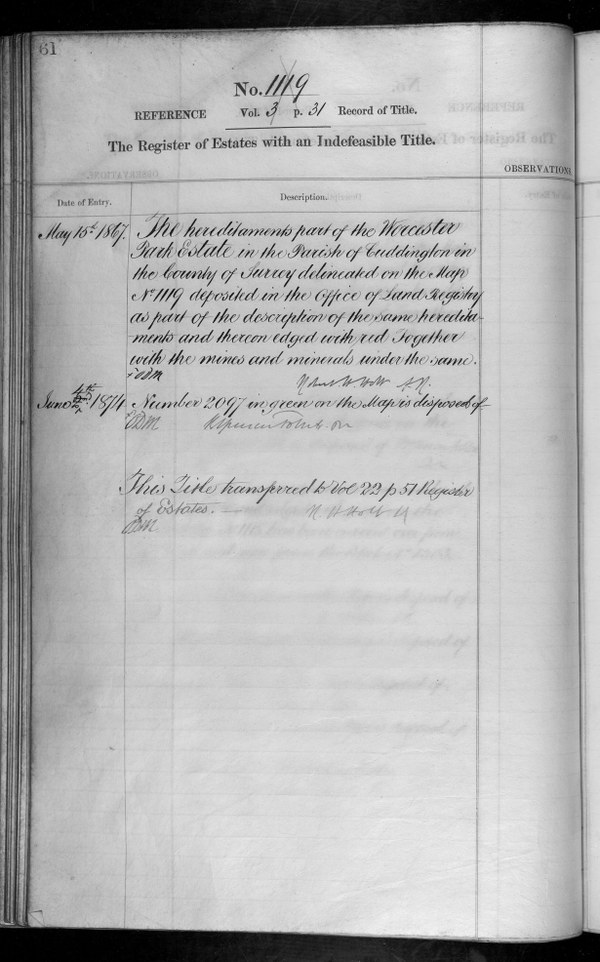 61
No. 1119
REFERENCE Vol. 3 p. 31 Record of Title.
The Register of Estates with an Indefeasible Title.
OBSERVATIONS
Date of Entry.
Description.
May 15th 1867. The hereditaments part of the Worcester
Park Estate in the Parish of Cuddington in
the County of Surrey delineated on the Map
No 1119 deposited in the Office of Land Registry
as part of the description of the same heredita-
-ments and thereon edged with red Together
with the mines and minerals under the same.
June 4th 1874 Number 2097 in green on the Map is disposed of
This Title transferred to Vol 22 p 51 Register
of Estates.